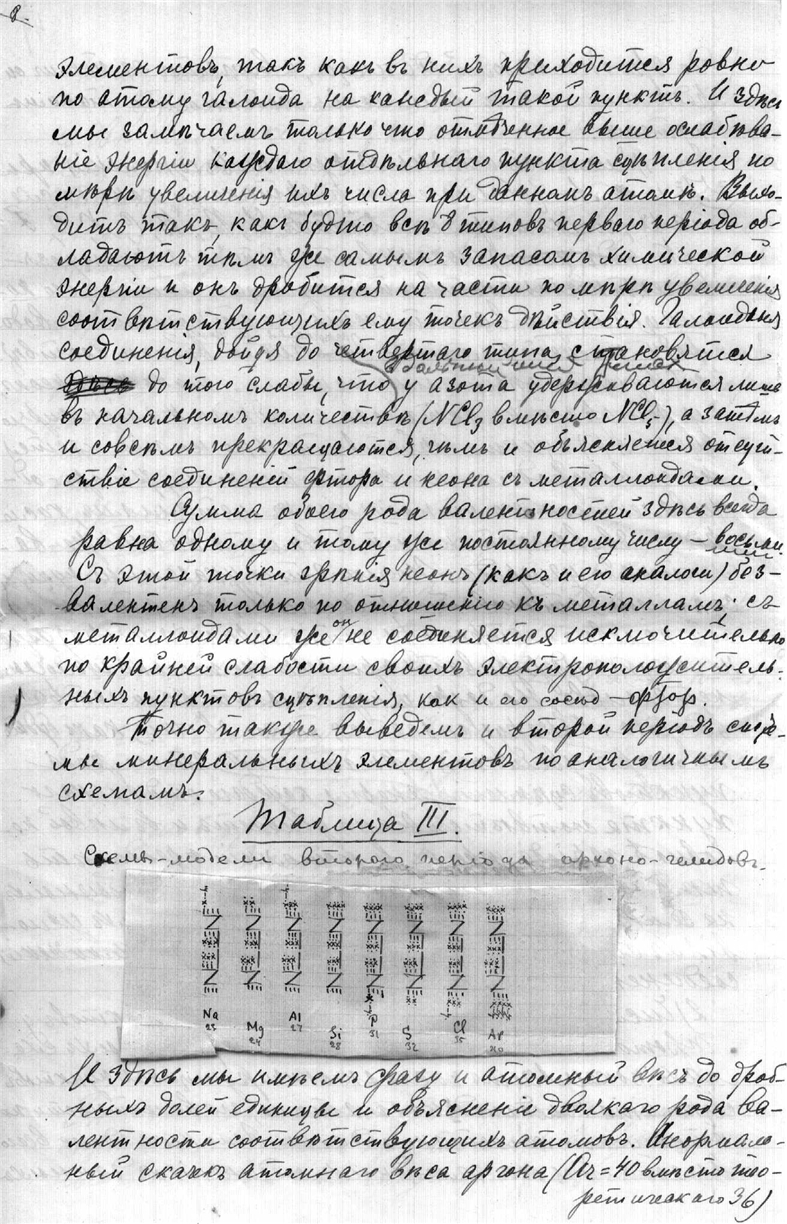 8.
элементовъ, такъ какъ въ нихъ приходится ровно
по атому галоида на каждый такой пунктъ. И здѣсь
мы замѣчаемъ только что отмѣченное выше ослабѣва-
ніе энергіи каждаго отдѣльнаго пункта сцѣпленія по
мѣрѣ увеличенія ихъ числа при данномъ атомѣ. Выхо-
дитъ такъ, какъ будто всѣ 8 типовъ перваго періода об-
ладаютъ тѣмъ же самымъ запасомъ химической
энергіи и онъ дробится на части по мѣрѣ увеличенія
соотвѣтствующихъ ему точекъ дѣйствія. Галоидныя
соединенія, дойдя до четвертаго типа, становятся
до того слабы, что у азота удерживаются лишь
въ начальномъ количествѣ (NCl₃ вмѣсто NCl₅), а затѣмъ
и совсѣмъ прекращаются, чѣмъ и объясняется отсут-
ствіе соединеній фтора и неона съ металлоидами.
Сумма обоего рода валентностей здѣсь всегда
равна одному и тому же постоянному числу – восьми
Съ этой точки зрѣнія неонъ (какъ и его аналоги) без-
валентенъ только по отношенію къ металламъ; съ
металлоидами же онъ не соединяется исключительно
по крайней слабости своихъ электроположитель-
ныхъ пунктовъ сцѣпленія, как и его сосѣд – фтор.
Точно также выведемъ и второй періодъ систе-
мы минеральныхъ элементовъ по аналогичнымъ
схемамъ.
Таблица III.
Схемы-модели второго періода арконо-гелидовъ.
Na 23 Mg 24 Al 27 Si 28 P 31 S 32 Cl 35 Ar 40
И здѣсь мы имѣемъ сразу и атомный вѣсъ до дроб-
ныхъ долей единицы и объясненіе двоякаго рода ва-
лентности соотвѣтствующихъ атомовъ. Анормаль-
ный скачекъ атомнаго вѣса аргона (Ar = 40 вмѣсто тео-
ретическаго 36)